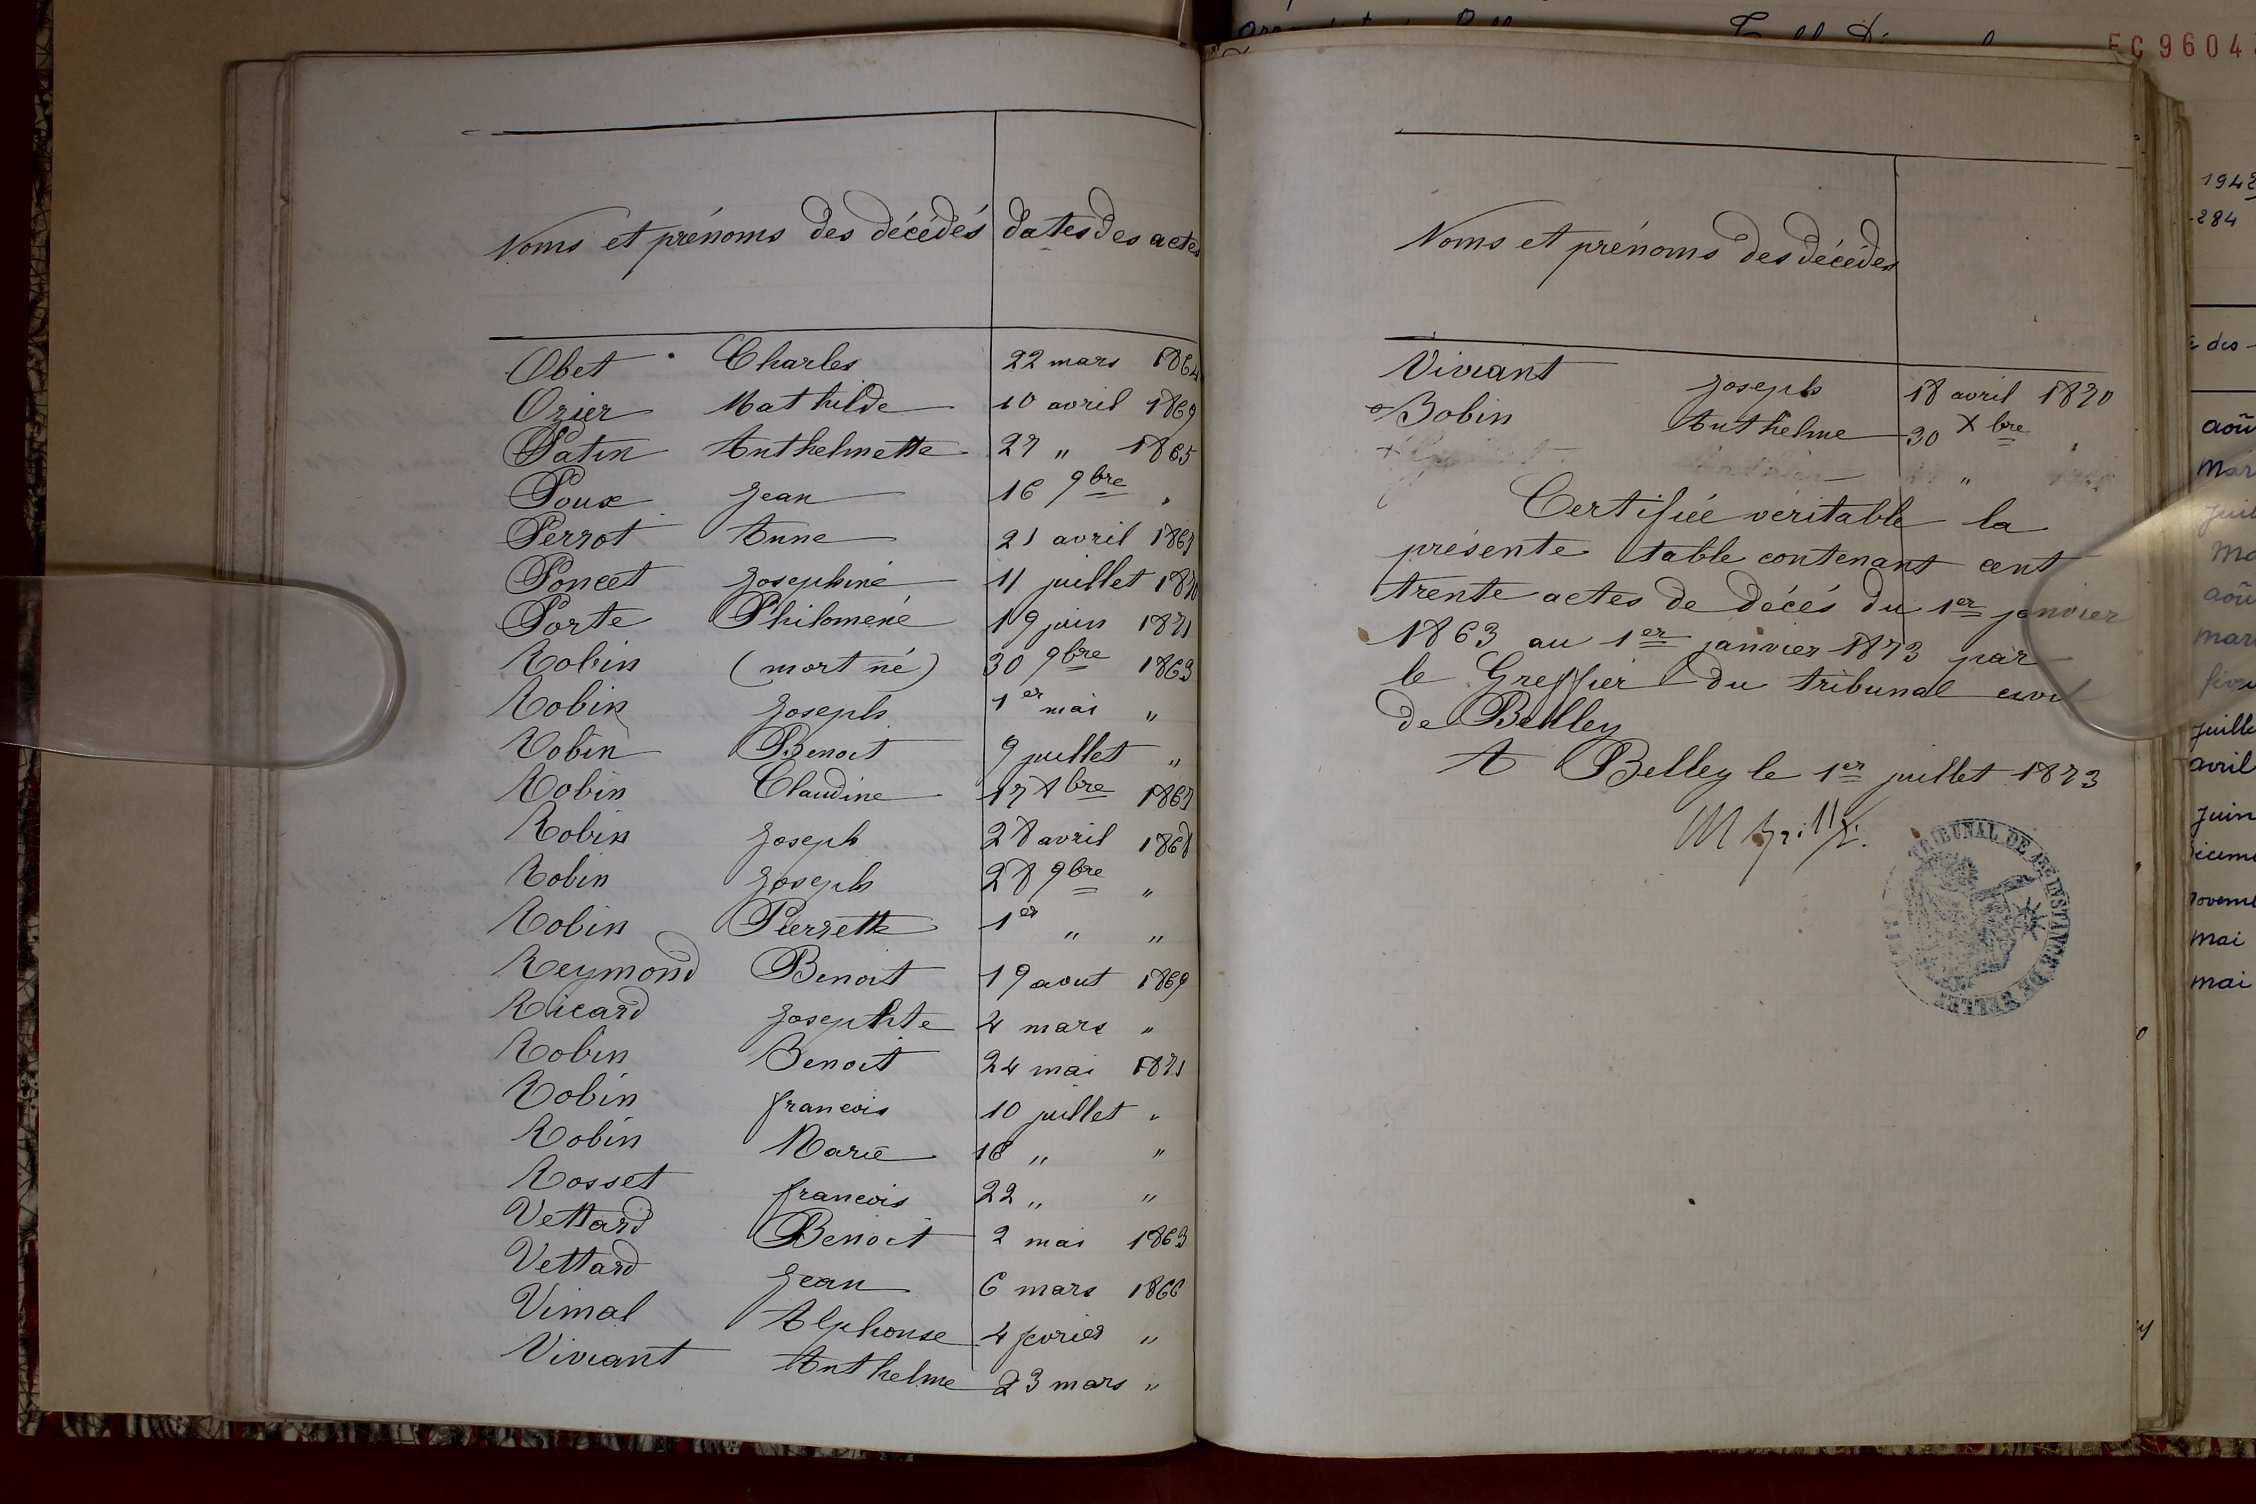 Noms et prénoms des décédés dates des actes
Obet Charles 22 mars 1864
Ozier Mathilde 10 avril 1869
Patin Anthelmette 27 " 1865
Poux Jean 16 9bre "
Perrot Anne 21 avril 1867
Poncet Josephine 11 juillet 1870
Porte Philomené 19 juin 1871
Robin (mort né) 30 9bre 1863
Robin Joseph 1er mai "
Robin Benoit 9 juillet "
Robin Claudine 17 Xbre 1867
Robin Joseph 28 avril 1868
Robin Joseph 28 9bre "
Robin Pierrette 1er " "
Reymond Benoit 19 aout 1869
Ricard Josephte 4 mars "
Robin Benoit 24 mai 1871
Robin francois 10 juillet "
Robin Marie 16 " "
Rosset francois 22 " "
Vettard Benoit 2 mai 1863
Vettard Jean 6 mars 1866
Vimal Alphonse 4 fevrier "
Viviant Anthelme 23 mars "
Noms et prénoms des décédés
Viviant Joseph 18 avril 1870
Bobin Anthelme 30 Xbre "
Certifiée véritable la
présente table contenant cent
trente actes de décés du 1er janvier
1863 au 1er janvier 1873 par
le Greffier du tribunal civil
de Bellley
A Belley le 1er juillet 1873
TRIBUNAL DE 1RE INSTANCE DE BELLEY
1942
284
des
août
mars
juil
ma
août
mars
juille
avril
juin
mai
mai